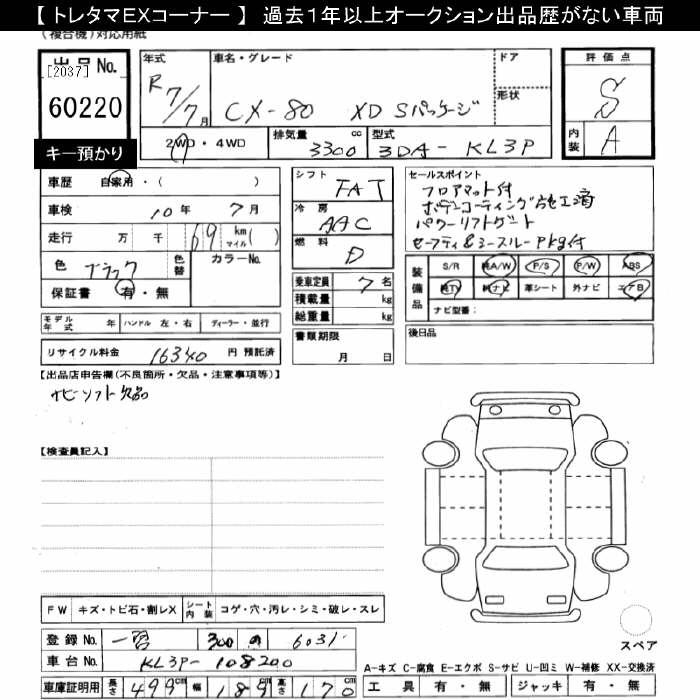 【 トレタマEXコーナー 】 過去1年以上オークション出品歴がない車両
(複合機)対応用紙
出品No.
[2037]
60220
キー預かり
年式
R 7/7月
車名・グレード
CX-80 XD Sパッケージ
ドア
形状
2WD・4WD
排気量 3300 cc
型式 3DA- KL3P
評価点
S
内装 A
車歴 自家用・( )
車検 10年 7月
走行 万 千 69 km マイル( )
色 ブラック 色替
カラーNo.
保証書 有・無
シフト FAT
冷房 AAC
燃料 D
乗車定員 7名
積載量 kg
総重量 kg
セールスポイント
フロアマット付
ボデーコーティング施工済
パワーリフトゲート
セーフティ&シースルーPkg付
装備品 S/R 純A/W P/S P/W ABS
純TV 純ナビ 革シート 外ナビ エアB
ナビ型番:
モデル年式 年 ハンドル 左・右 ディーラー・並行
書類期限
月 日
後日品
リサイクル料金 16340 円 預託済
【出品店申告欄(不良箇所・欠品・注意事項等)】
ナビソフト欠品
【検査員記入】
FW キズ・トビ石・割レX シート内装 コゲ・穴・汚レ・シミ・破レ・スレ
登録No. 300 の 6031
車台No. KL3P- 108200
車庫証明用 長さ 499cm 幅 189cm 高さ 170cm
スペア
A-キズ C-腐食 E-エクボ S-サビ U-凹ミ W-補修 XX-交換済
工具 有・無 ジャッキ 有・無